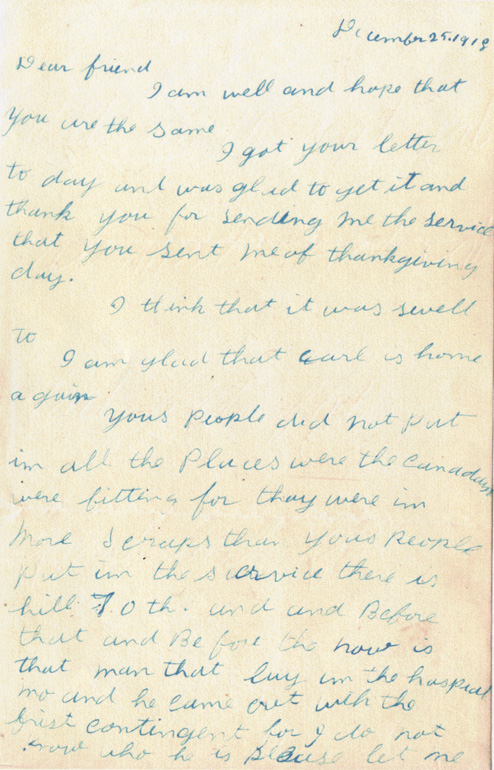 December 25. 1919
Dear friend
I am well and hope that
you are the same
I got your letter
to day and was glad to get it and
thank you for sending me the service
that you sent me of thankgiving
day.
I think that it was swell
to
I am glad that earl is home
again
yous People did not put
im all the Places were the Canadays
were fitting for thay were im
more scraps than yous People
put im the service there is
hill 70 th. and and Before
that and Before the now is
that man that lay im the hospital
mo and he came out with the
first contingent for I do not
know who he is Please let me